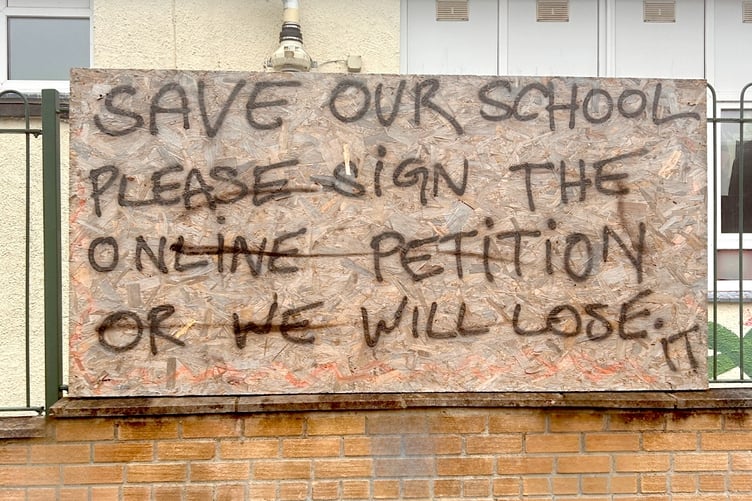 SAVE OUR SCHOOL
PLEASE SiGN THE
ONLINE PETiTiON
OR WE WiLL LOSE.
iT